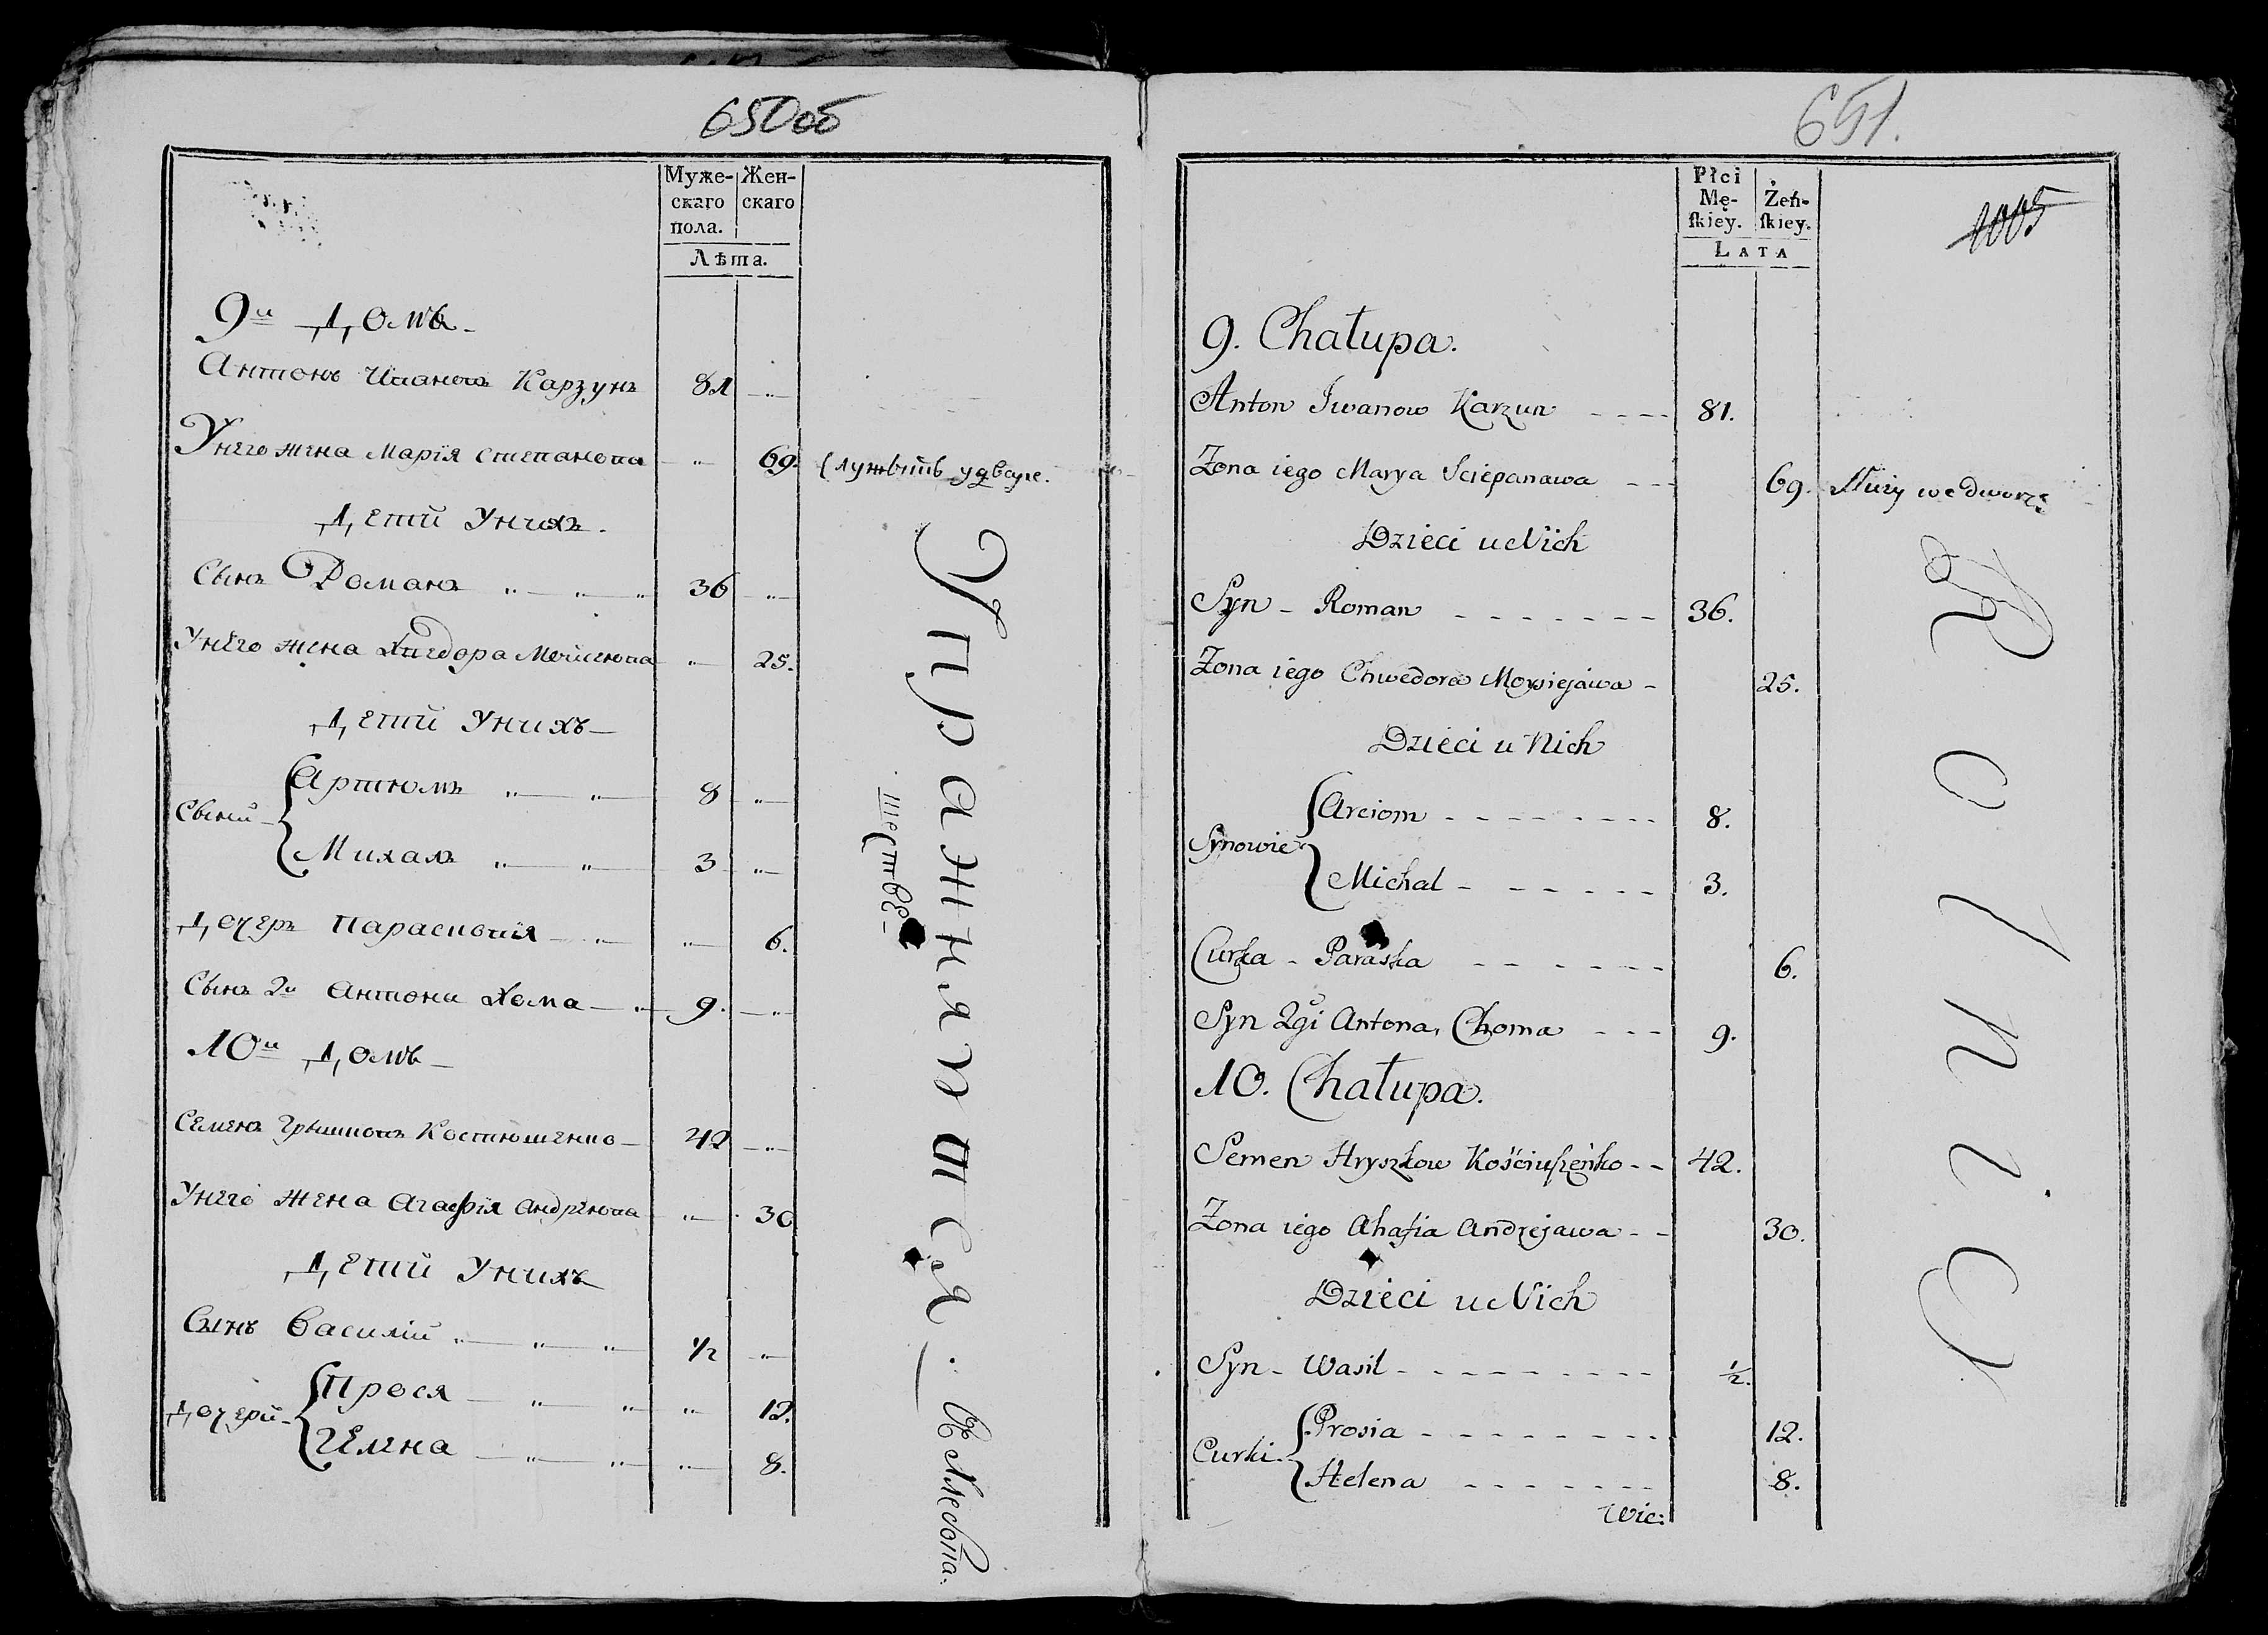 650об
Муже-
скаго
пола.
Жен-
скаго
Лѣта.
9й Домъ
Антонъ Ивановъ Карзунъ 81
Унего жена Марія Степанова 69. Служыть удваре.
Дети Унихъ.
Сынъ Романъ 36
Унего жена Хведора Мойсеюва 25.
Дети Унихъ
Сыни
Артюмъ 8
Михалъ 3
Дочеръ Парасковія 6.
Сынъ 2й Антони Хома 9.
10й Домъ
Семенъ Грышковъ Костюшенко 42
Унего Жена Агафія Андреюва 30
Дети Унихъ
Сынъ Василій 1/2
Дочери
Прося 12.
Гелена 8.
Упражняется.
651.
1005
Płci
Mę-
skiey.
Żeń-
skiey.
LATA
9. Chałupa.
Anton Iwanow Karzun 81.
Zona iego Marya Sciepanawa 69. Służy we dworze
Dzieci u Nich
Syn - Roman 36.
Zona iego Chwedora Moysiejawa 25.
Dzieci u Nich
Synowie
Arciom 8.
Michal 3.
Curka - Paraska 6.
Syn 2gi Antona, Choma 9.
10. Chałupa.
Semen Hryszkow Kościuszeńko 42.
Zona iego Ahafia Andrejawa 30.
Dzieci u Nich
Syn - Wasil 1/2.
Curki
Prosia 12.
Helena 8.
Wie:
Rolnicy